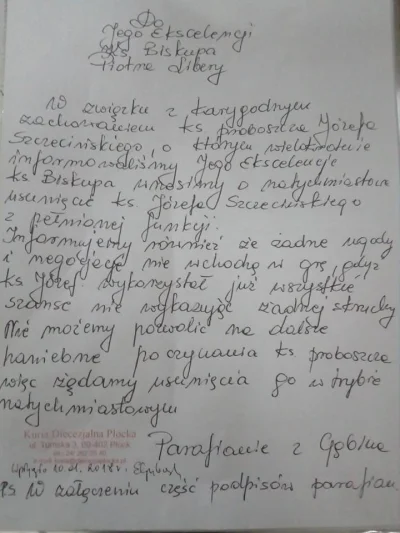 Do
Jego Ekscelencji
Ks Biskupa
Piotra Libery
W związku z karygodnym
zachowaniem ks proboszcza Józefa
Szczecińskiego, o którym wielokrotnie
informowaliśmy Jego Ekscelencję
ks Biskupa wnosimy o natychmiastowe
usunięcie ks. Józefa Szczecińskiego
z pełnionej funkcji.
Informujemy również że żadne ugody
i negocjacje nie wchodzą w grę, gdyż
ks Józef wykorzystał już wszystkie
szanse nie wykazując żadnej skruchy
Nie możemy pozwolić na dalsze
haniebne poczynania ks proboszcza
więc żądamy usunięcia go w trybie
natychmiastowym
Kuria Diecezjalna Płocka
ul. Tumska 3, 09-402 Płock
Parafianie z Gąbina
10.01.2018r.
Ps W załączeniu część podpisów parafian